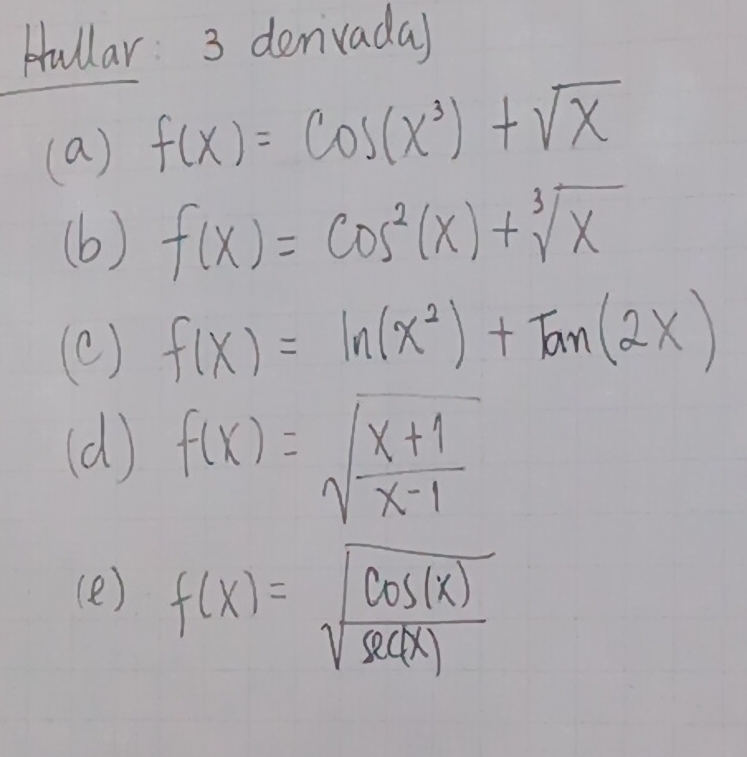 Hallar: 3 derivadas
(a) f(x) = Cos(x³) + √x
(b) f(x) = Cos²(x) + ∛x
(c) f(x) = ln(x²) + Tan(2x)
(d) f(x) = √((x+1)/(x-1))
(e) f(x) = √(Cos(x)/sec(x))